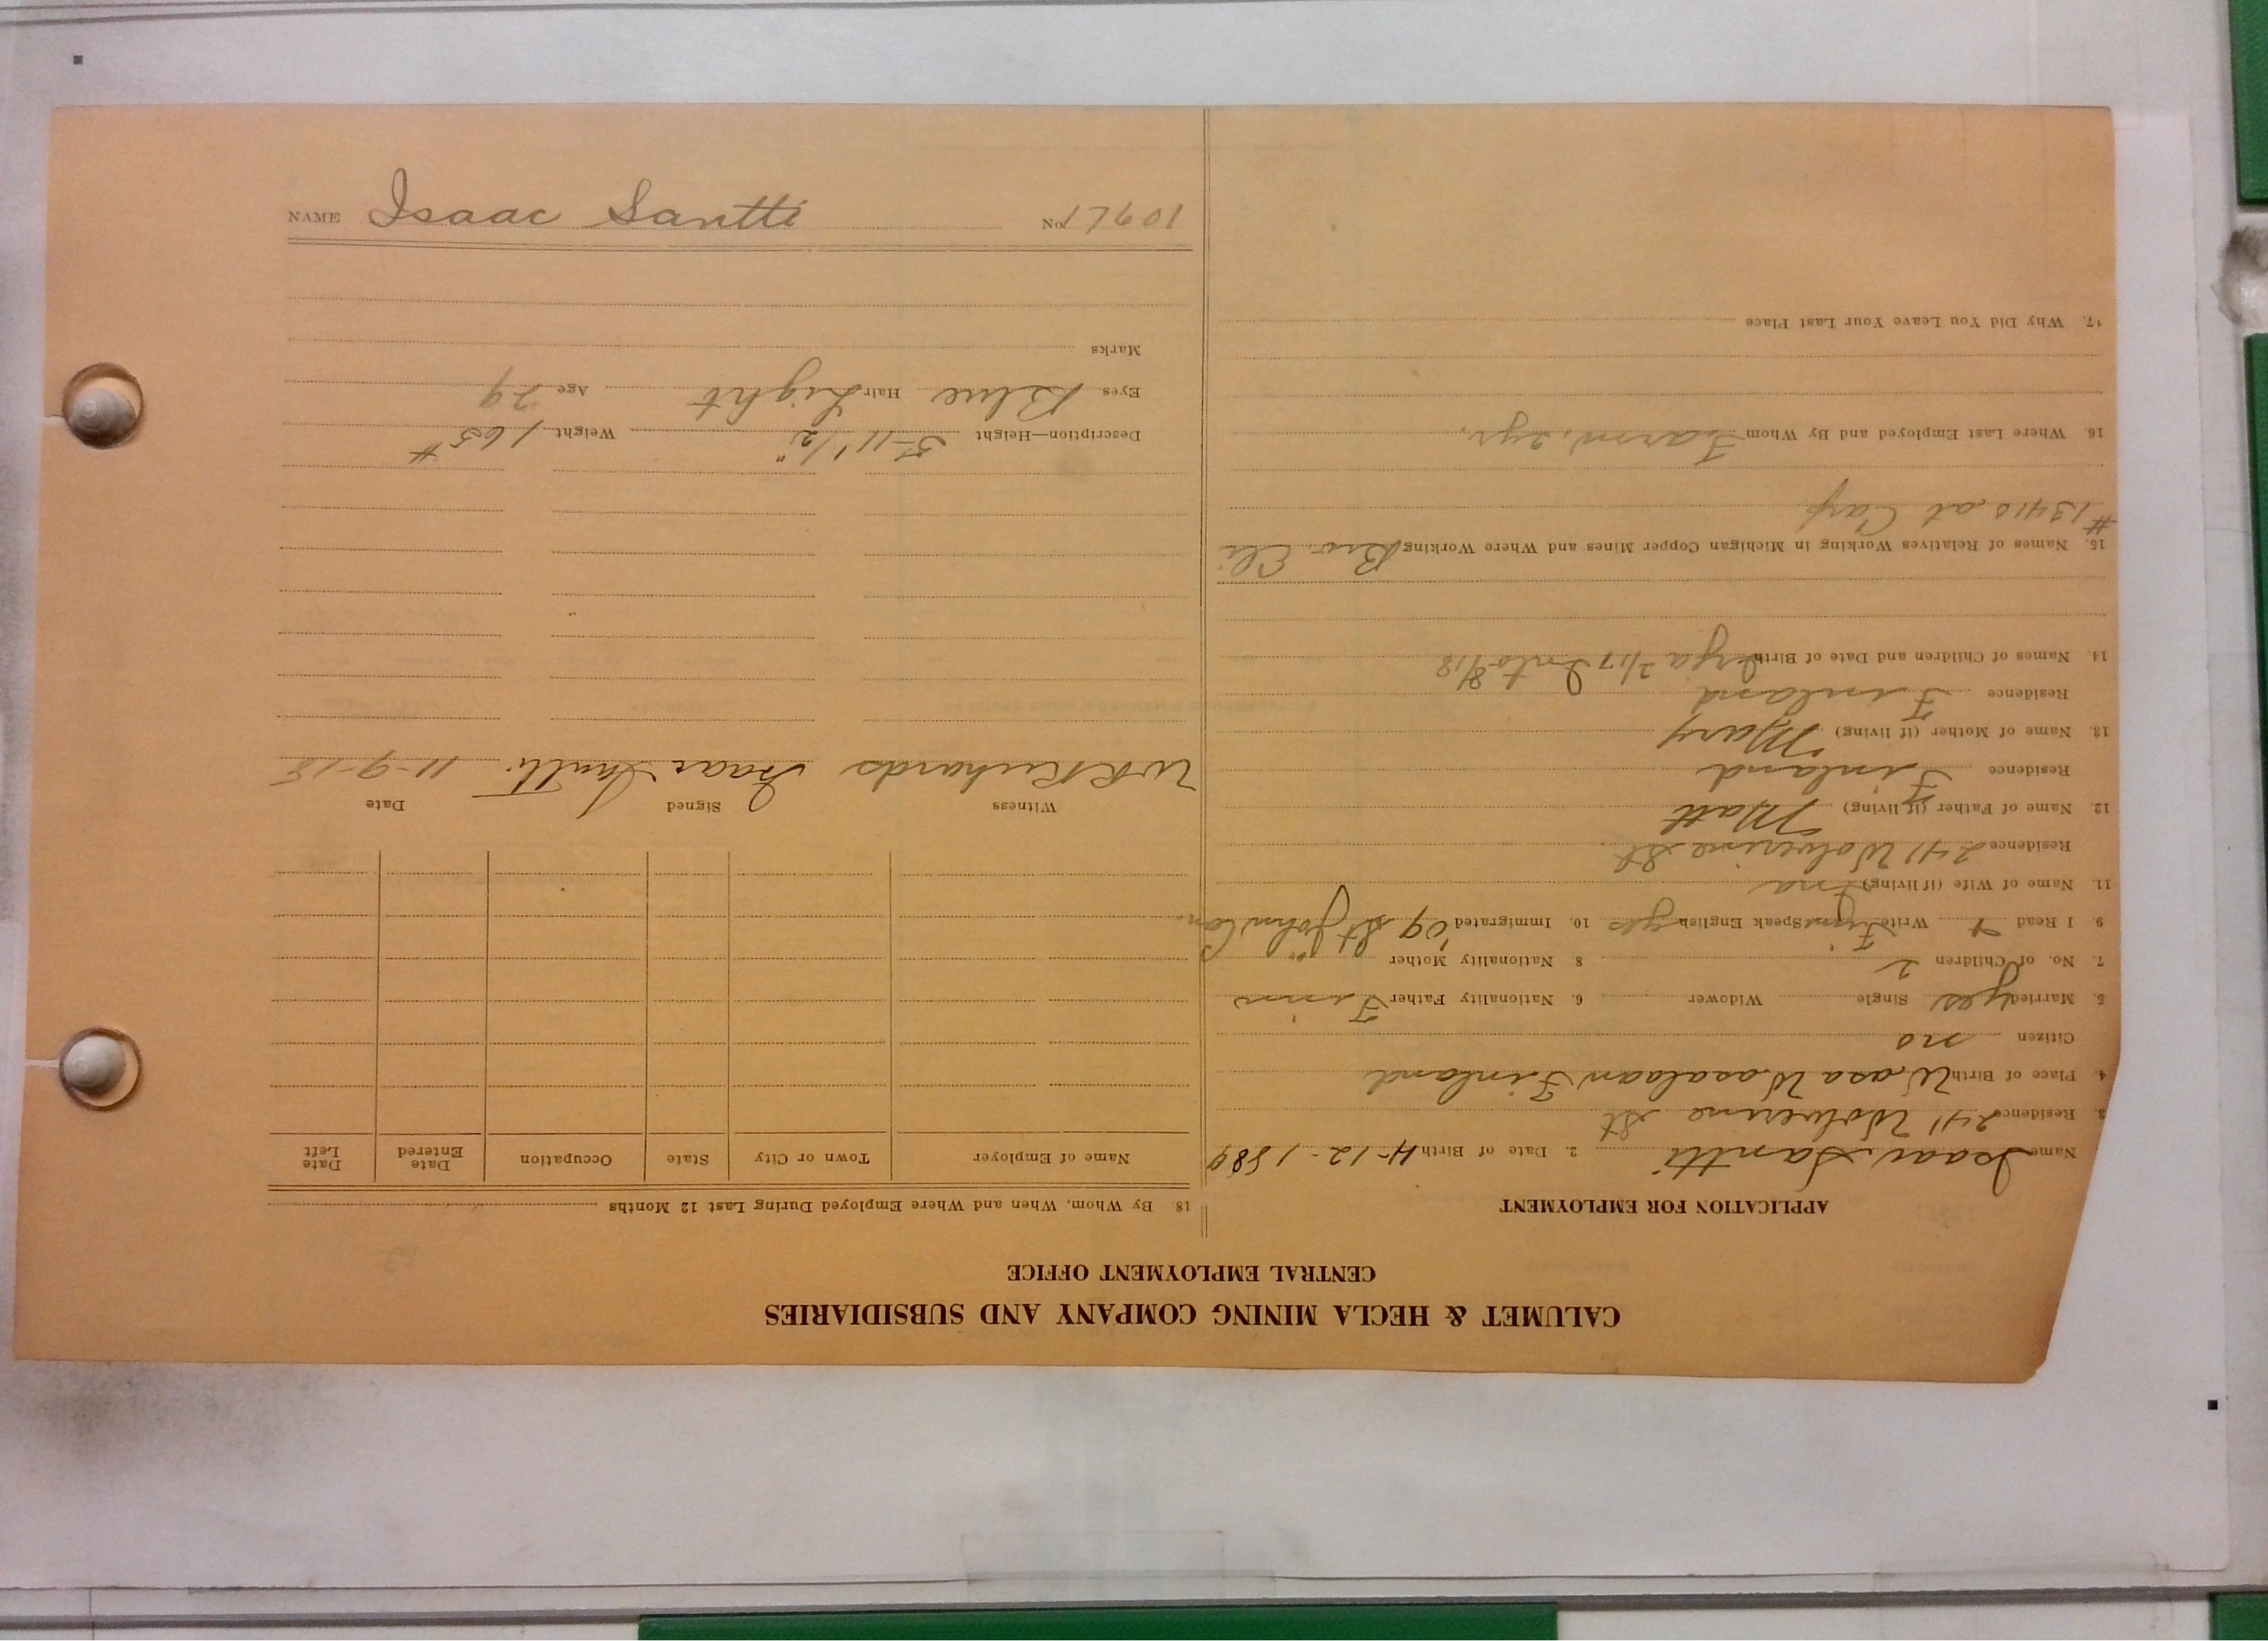 CALUMET & HECLA MINING COMPANY AND SUBSIDIARIES
CENTRAL EMPLOYMENT OFFICE
APPLICATION FOR EMPLOYMENT
Name Isaac Santti 2. Date of Birth 4-12-1889
3. Residence 241 Wolverine St
4. Place of Birth Wasa Wasalaan Finland
Citizen no
5. Married yes Single Widower 6. Nationality Father Finn
7. No. of Children 2 8 Nationality Mother "
9. I Read + Write Finn Speak English yes 10. Immigrated '09 St John Can.
11. Name of Wife (if living) Ina
Residence 241 Wolverine St
12. Name of Father (if living) Matt
Residence Finland
13. Name of Mother (if living) Mary
Residence Finland
14. Names of Children and Date of Birth 2/17 8/18
15. Names of Relatives Working in Michigan Copper Mines and Where Working Bro. Eli
#13410 at Carp
16. Where Last Employed and By Whom Farm, 2 yr.
17. Why Did You Leave Your Last Place
18. By Whom, When and Where Employed During Last 12 Months
Name of Employer Town or City State Occupation Date Entered Date Left
Witness Signed Date
W R Richards Isaac Santti 11-9-18
Description—Height 5-11 1/2" Weight 165#
Eyes Blue Hair Light Age 29
Marks
NAME Isaac Santti No.